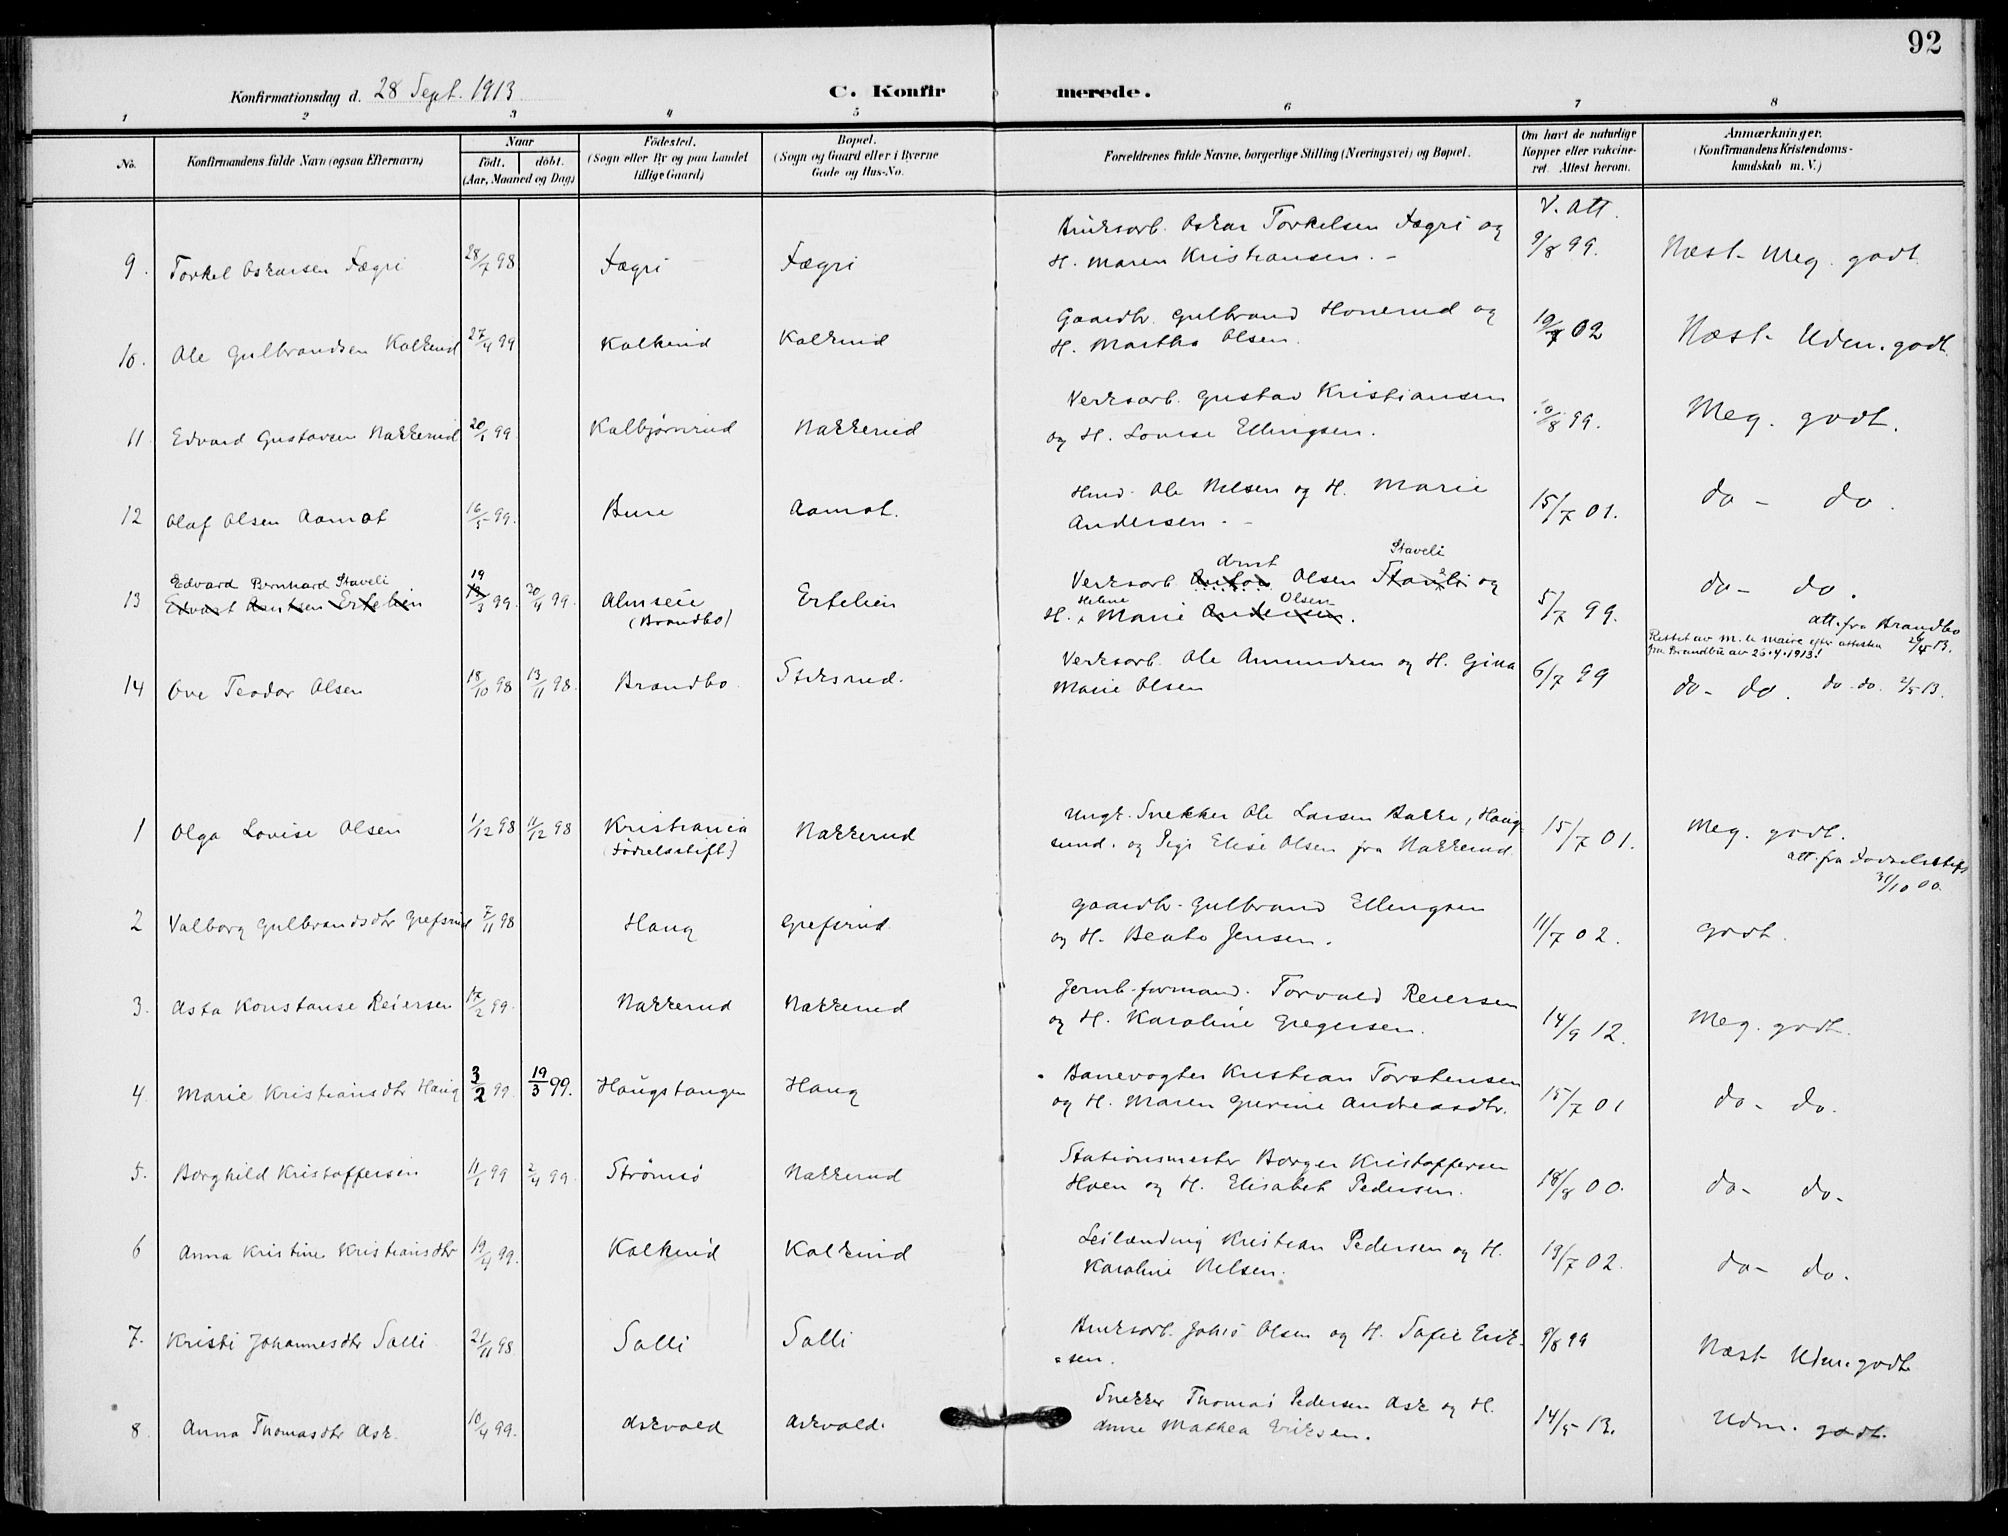 92
Konfirmationsdag d. 28 Sept. 1913
C. Konfir merede.
1 2 3 4 5 6 7 8
No.
Konfirmandens fulde Navn (ogsaa Efternavn)
Naar
født. døbt.
(Aar, Maaned og Dag)
Fødested.
(Sogn eller By og paa Landet
tillige Gaard)
Bopæl.
(Sogn og Gaard eller i Byerne
Gade og Hus-No.
Forældrenes fulde Navne, borgerlige Stilling (Næringsvei) og Bopæl.
Om havt de naturlige
Kopper eller vakcine-
ret. Attest herom.
Anmærkninger.
(Konfirmandens Kristendoms-
kundskab m. V.)
Bruksarb. Oskar Torkelsen Fægri og V. Att.
9. Torkel Oskarsen Fægri 28/7 98 Fægri Fægri H. Maren Kristiansen. - 9/8 99. Næst- Meg. godt
Gaardbr. Gulbrand Honerud og
10. Ole Gulbrandsen Kolkerud 27/4 99 Kolkerud Kolkerud H. Martha Olsen. 02 Næst- Udm. godt.
Verksarb. Gustav Kristiansen
11. Edvard Gustavsen Nakkerud 20/1 99. Kalbjørnrud Nakkerud og H. Lovise Ellingsen. 10/8 99. Meg. godt.
Husmd. Ole Nelsen og H. Marie
12 Olaf Olsen Aamot 16/5 99. Bure Aamot. Andersen. - 15/7 01. do - do.
Ernst Staveli
Edvard Bernhard Staveli 19 Verksarb. Anton Olsen Stavli og
13 Edvart Arntsen Ertelien 3 99. 30/4 99. Almseie Ertelien Helene Olsen
(Brandbo) H. Marie Andersen. 5/7 99. do - do.
att. fra Brandbo
Rettet av M. le Maire efter attesten
fra Brandbu av 26.4.1913!
Verksarb. Ole Amundsen og H. Gina
14 Ove Teodor Olsen 18/10 98 13/11 98. Brandbo. Stiksrud. Marie Olsen 6/7 99 do - do. do. do. 2/5 13.
Ungk. Snekker Ole Larsen Bakke, Haug-
1 Olga Lovise Olsen 1/12 98 11/12 98 Kristiania Nakkerud sund. og Pige Elise Olsen fra Nakkerud 15/7 01. Meg. godt.
(Fødselsstift.) att. fra Fødselsstift
31/10 00.
Gaardbr. Gulbrand Ellingsen
2 Valborg Gulbrandsdtr Grefsrud 7/11 98 Haug Grefsrud og H. Beate Jensen. 11/7 02. godt.
Jernb. formand. Torvald Reiersen
3. Asta Konstanse Reiersen 17/2 99. Nakkerud Nakkerud og H. Karoline Gregersen. 14/9 12. Meg. godt.
Banevogter Kristian Torstensen
4. Marie Kristiansdtr Haug 3/2 99. 19/3 99. Haugstangen Haug og H. Maren Gurine Andreasdtr. 15/7 01 do- do.
Stationsmester Borger Kristoffersen
5. Borghild Kristoffersen 11/1 99 2/4 99. Strömsö Nakkerud Hoen og H. Elisabet Pedersen. 18/8 00. do- do-
Leilænding Kristian Pedersen og H.
6 Anna Kristine Kristiansdtr 19/4 99. Kolkerud Kolkerud Karoline Nelsen. 19/7 02. do- do.
Bruksarb. Johs Olsen og H. Sofie Erik-
7. Kristi Johannesdtr Solli 21/11 98 Solli Solli sen. 9/8 99 Næst- Udm. godt
Snekker Thomas Pedersen Ask og H.
8. Anna Thomasdtr Ask. 10/4 99. Askvold Askvold. Anne Mathea Eriksen. 14/5 13. Udm. godt.